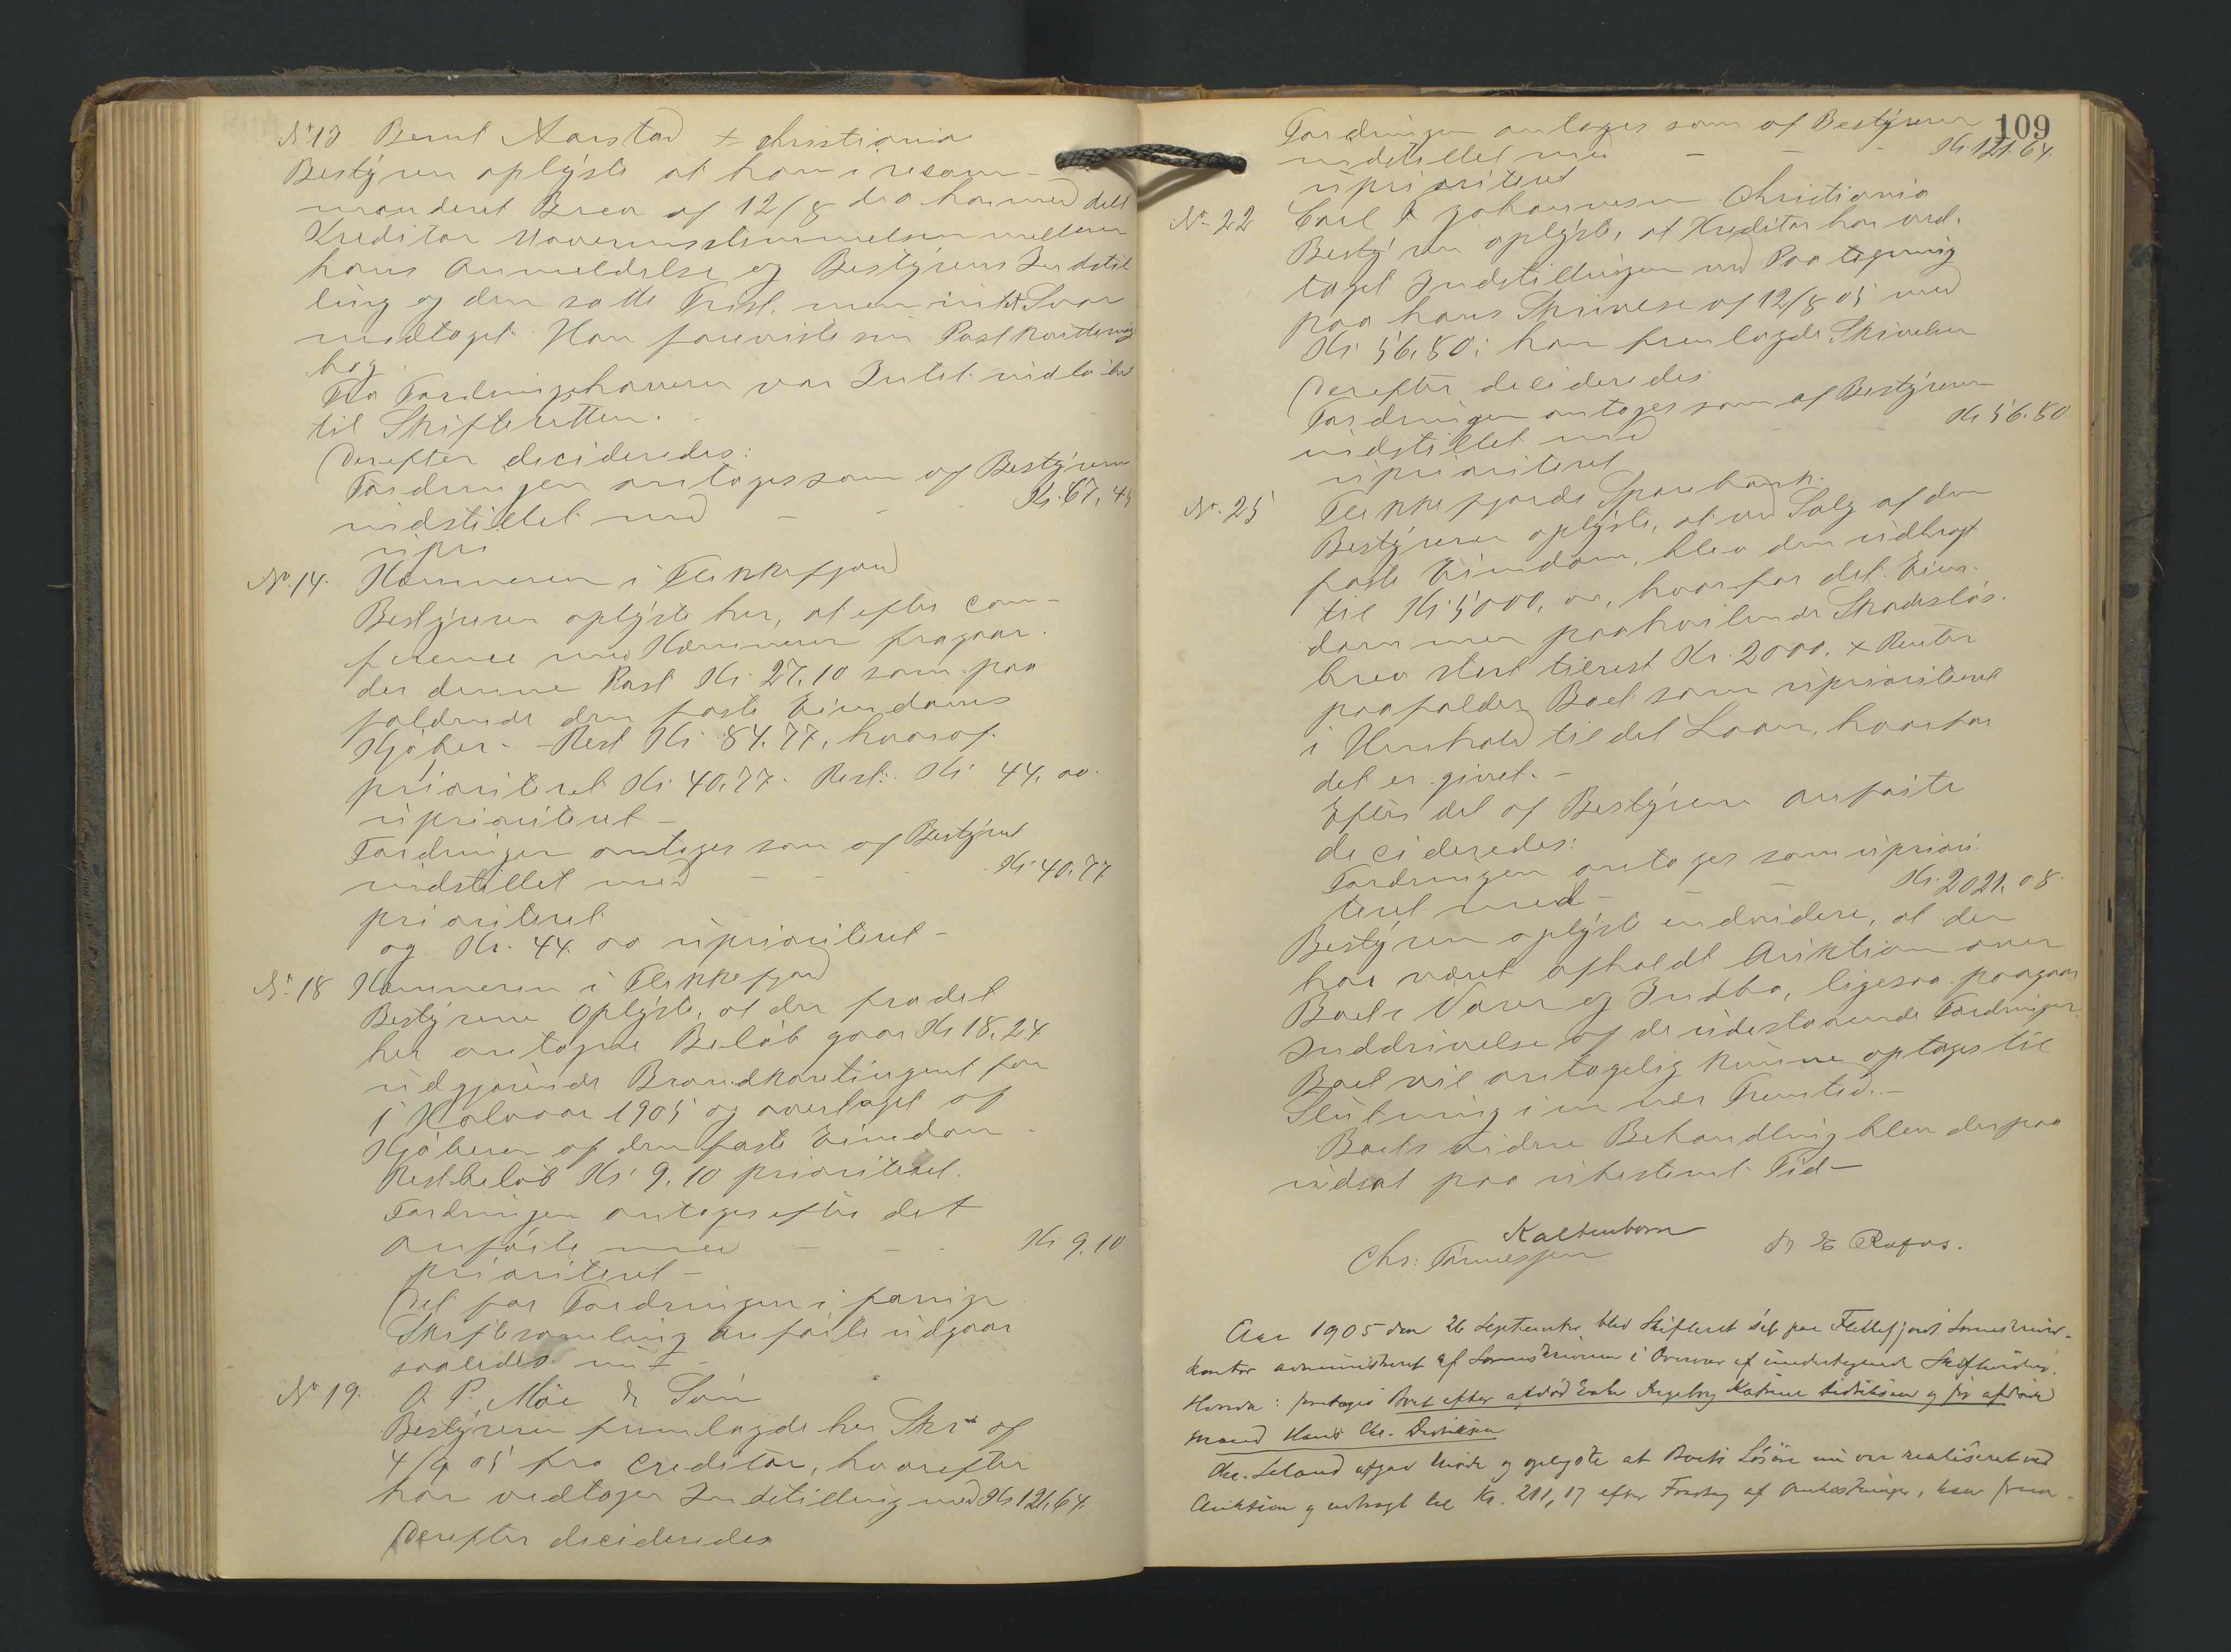 No 13 Bernt Aarstad Christiania
Bestyreren oplyste at han i recom-
manderet Brev af 12/8 d.a. har meddelt
Kreditor Uoverensstemmelsen mellem
hans Anmeldelse og Bestyrerens Indstil
ling og den satte Frist, men intet Svar
modtaget. Han foreviste sin Postkvitterings
bog.
Fra Fordringshaveren var Intet indløbet
til Skifteretten.
Derefter decideredes:
Fordringen antages som af Bestyreren
indstillet med - - Kr. 67,45
upri
No. 14. Kæmneren i Flekkefjord
Bestyreren oplyste her, at efter con-
ference med Kæmneren fragaar
der denne Post Kr. 27.10 som paa
faldende den faste Eiendoms
Kjøber. - Rest Kr. 84.77, hvoraf
prioriteret Kr. 40.77. Rest: Kr. 44.00.
uprioriteret -
Fordringen antages som af Bestyrer
indstillet med - - - Kr. 40.77
prioriteret
og Kr. 44.00 uprioriteret -
No. 18 Kæmneren i Flekkefjord
Bestyreren Oplyste, at der fra det
her antagne Beløb gaar Kr 18.24
udgjørende Brandkontingent for
1 Halvaar 1905 og overtaget af
Kjøberen af den faste Eiendom.
Restbeløb Kr. 9.10 prioriteret.
Fordringen antages efter det
anførte med - - - Kr. 9.10
prioriteret -
Det for Fordringen i forrige
Skiftesamling anførte udgaar
saaledes
No 19. O. P. Möe & Søn
Bestyreren fremlagde her Skr. af
4/9 05 fra Creditor, hvorefter
han vedtager Indstilling med Kr 121.64.
Derefter decideredes
109
Fordringen antages som af Bestyreren
indstillet med - - - Kr. 121.64.
uprioriteret
No. 22 Carl Johannesen Christiania
Bestyreren oplyste, at Kreditor har ved-
taget Indstillingen ved Paategning
paa hans Skrivelse af 12/8 05 med
Kr. 56.80; han fremlagde Skrivelsen
Derefter decideredes
Fordringen antages som af Bestyreren
indstillet med - - Kr 56.80
uprioriteret
No. 25 Flekkefjords Sparebank.
Bestyreren oplyste, at ved Salg af den
faste Eiendom, blev den udbragt
til Kr. 5000,00, hvorfor det Eien-
dommen paahvilende Skadesløs-
brev stort tilrest Kr. 2000. + Renter
paafalder Boet som uprioriteret
i Henhold til det Laan, hvorfor
det er givet. -
Efter det af Bestyreren anførte
decideredes:
Fordringen antages som upriori
teret med - - - Kr. 2021.08
Bestyreren oplyste endvidere, at der
har været afholdt Auktion over
Boets Varer og Indbo, ligesaa paagaar
Inddrivelse af de udestaaende Fordringer
Boet vil antagelig kunne optages til
Slutning i en nær Fremtid. -
Boets videre Behandling blev derpaa
udsat paa ubestemt Tid -
Kaltenborn
Chr. Tønnessen
Aar 1905 den 26 September blev Skifteret sat paa Flekkefjords Sorenskriver-
kontor administreret af Sorenskriveren i Overvær af undertegnede Skiftevidner.
Hvorda: foretages Boet efter afdød Enke Ingeborg Katrine Didriksen og før afdøde
Mand Hans Chr. Didriksen
Chr. Seland afgav Møde og oplyste at Boets Løsøre nu var realiseret ved
Auktion og udbragt til Kr. 211,17 efter Fradrag af Omkostninger, han frem-